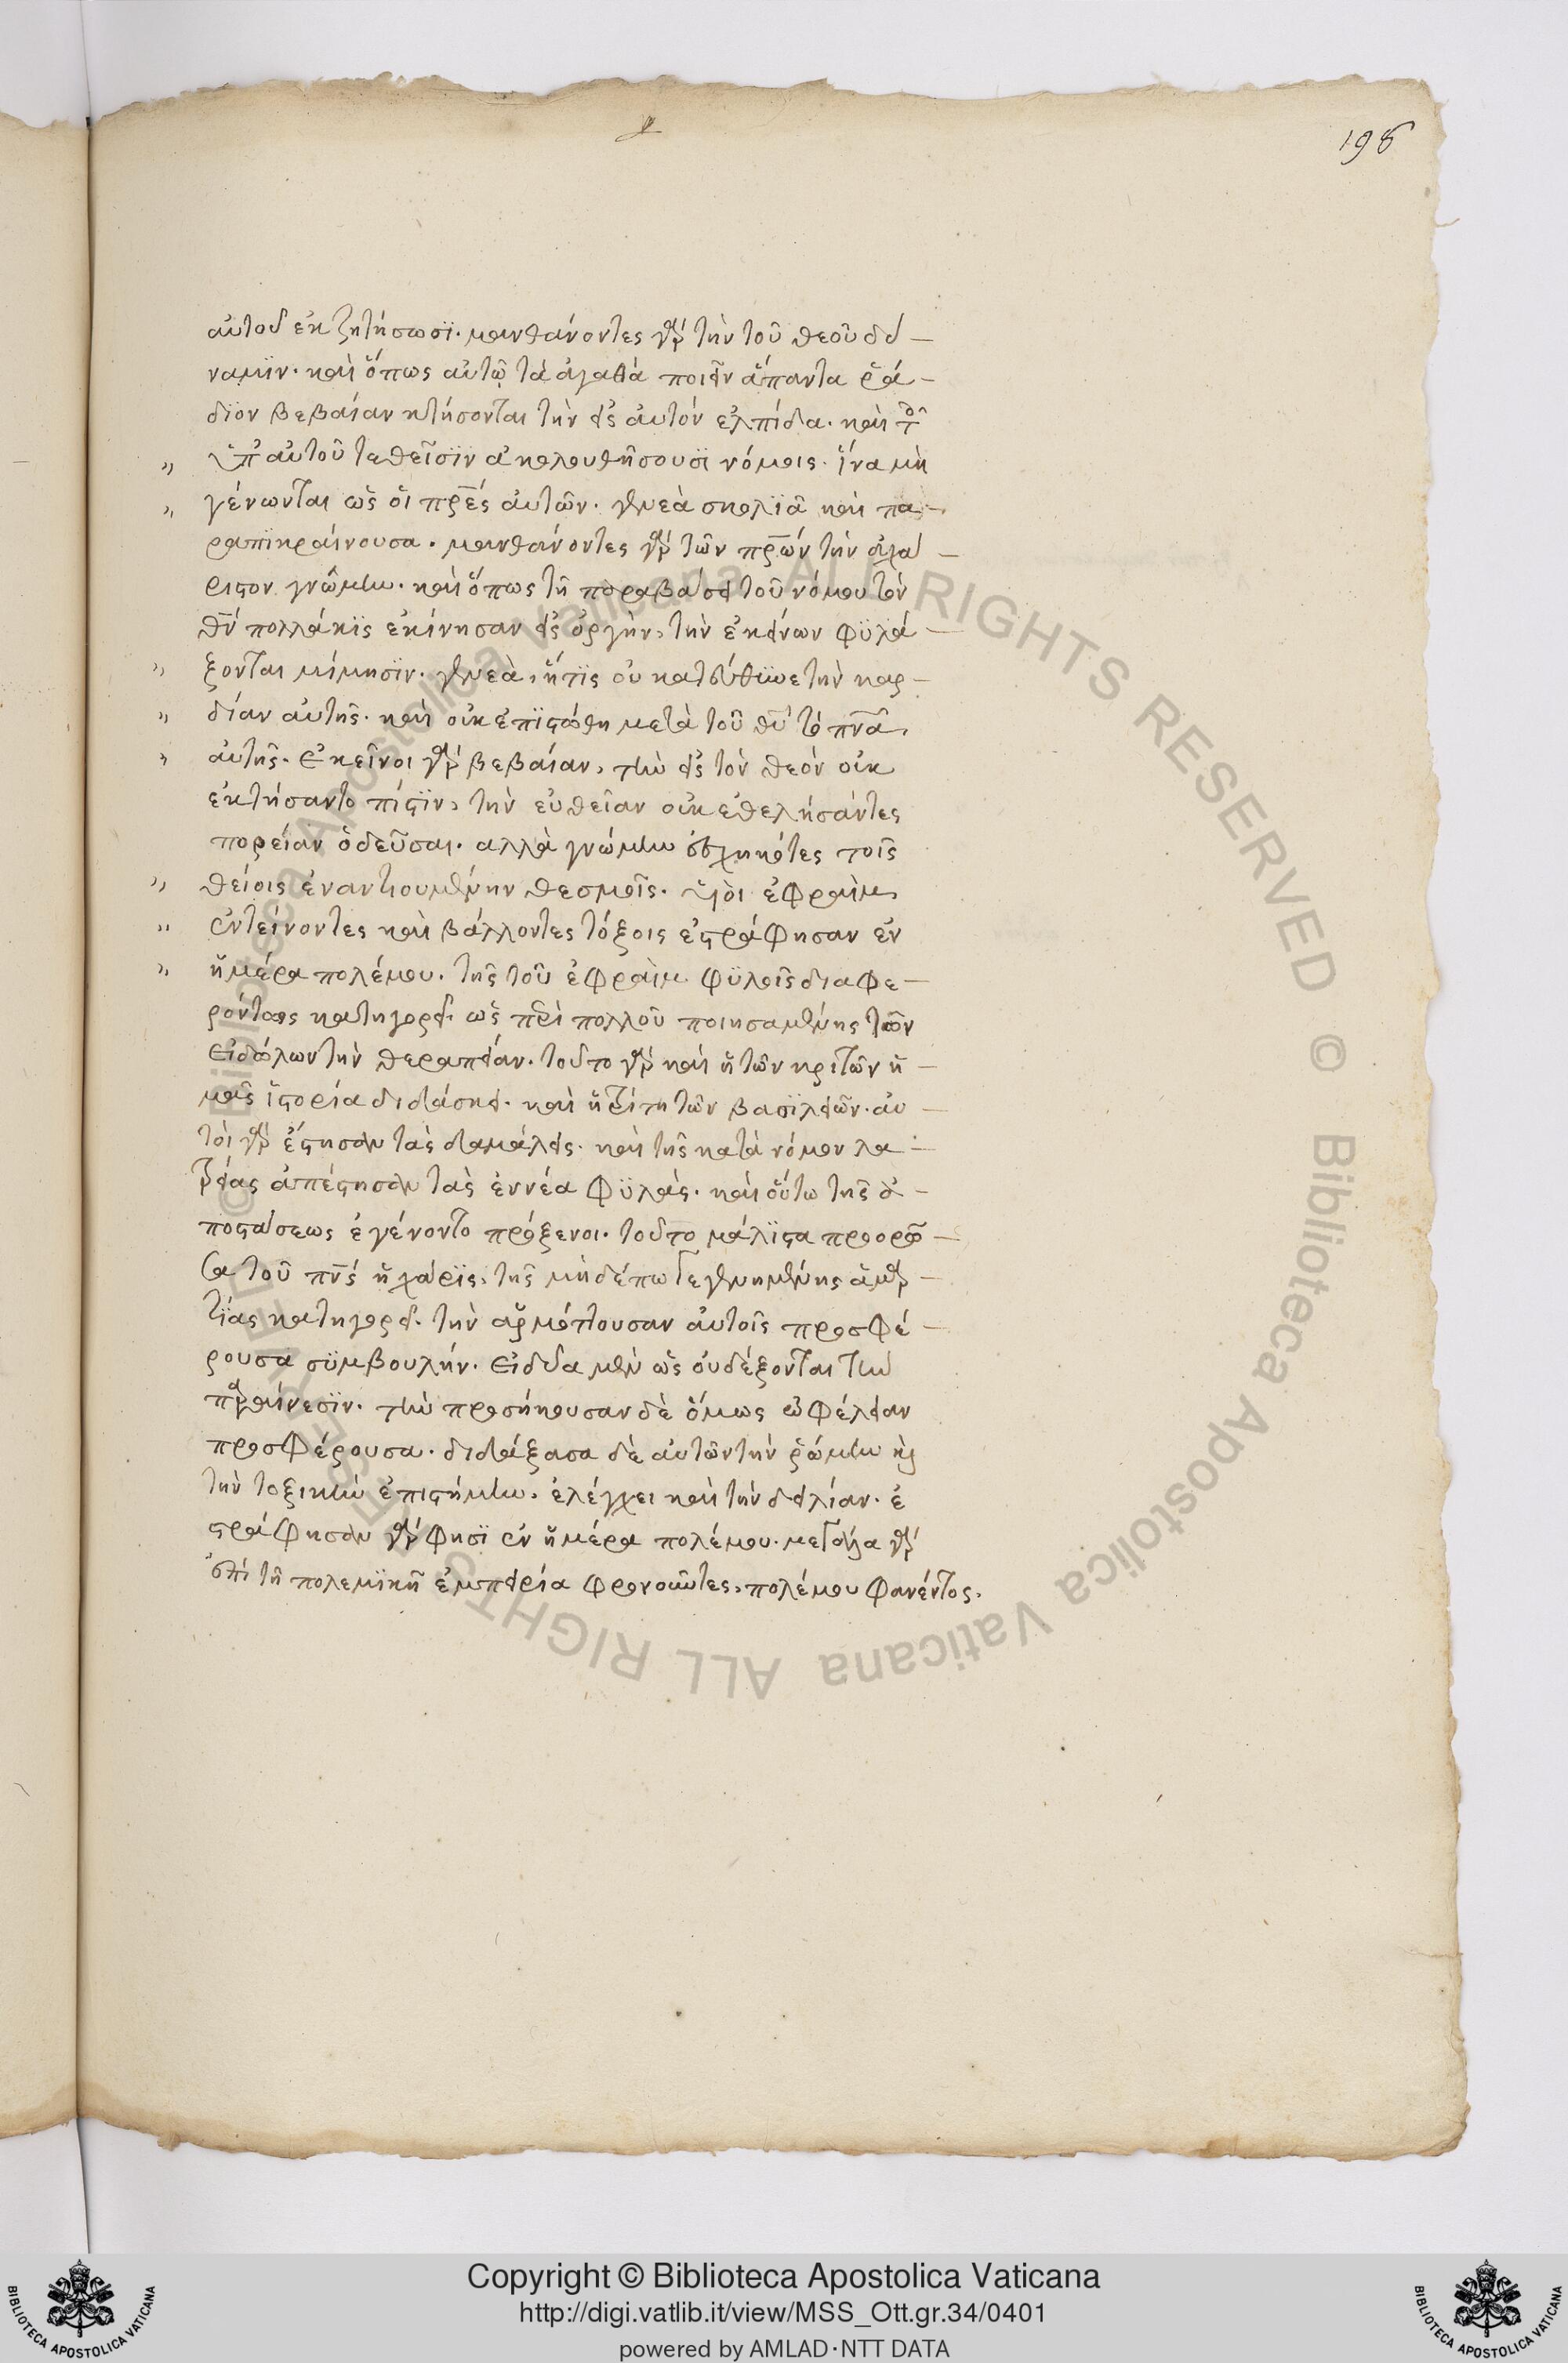 198
αὐτοῦ ἐκζητήσωσϊ. μανθάνοντες γὰρ τὴν τοῦ θεοῦ δύ–
ναμϊν. καὶ ὅπως αὐτῷ τὰ ἀγαθὰ ποιεῖν ἅπαντα ῥά–
δϊον βεβαίαν κτήσονται τὴν εἰς αὐτὸν ἐλπίδα. καὶ τοῖς
ὑπ' αὐτοῦ τεθεῖσϊν ἀκολουθήσουσϊ νόμοις. ἵνα μὴ
γένωνται ὡς οἱ πρ̅ε̅ς αὐτῶν. γενεὰ σκολϊὰ καὶ πα–
ραπϊκραίνουσα. μανθάνοντες γὰρ τῶν πρ̅ω̅ν τὴν ἀχά–
ριστον γνώμην. καὶ ὅπως τῇ παραβάσει τοῦ νόμου τὸν
θ̅ν̅ πολλάκϊς ἐκίνησαν εἰς ὀργὴν, τὴν ἐκείνων φϋλά–
ξονται μίμησϊν. γενεὰ, ἥτϊς οὐ κατεύθϋνε τὴν καρ–
δίαν αὐτῆς. καὶ οὐκ ἐπϊστώθη μετὰ τοῦ θ̅υ̅ τὸ πν̅α̅
αὐτῆς. ἐκεῖνοι γὰρ βεβαίαν, τὴν εἰς τὸν θεὸν οὐκ
ἐκτήσαντο πίστϊν, τὴν εὐθεῖαν οὐκ ἐθελήσάντες
πορείαν ὁδεῦσαι. αλλὰ γνώμην ἐσχηκότες τοῖς
θείοις ἐναντιουμένην θεσμοῖς. ὑϊοὶ ἐφραὶμ
ἐντείνοντες καὶ βάλλοντες τόξοις ἐστράφησαν ἐν
ἡμέρα πολέμου. τῆς τοῦ ἐφραὶμ φϋλοῖς διαφε–
ρόντως κατηγορεῖ. ὡς περὶ πολλοῦ ποιησαμένης τῶν
εἰδώλων τὴν θεραπείαν. τοῦτο γὰρ καὶ ἡ τῶν κριτῶν ἡ–
μᾶς ἱστορία διδάσκει. καὶ ἡ τρίτη τῶν βασϊλειῶν. αὐ–
τοὶ γὰρ ἔστησαν τὰς δαμάλεις. καὶ τῆς κατὰ νόμον λα–
τρείας ἀπέστησαν τὰς ἐννέα φϋλάς. καὶ οὕτω τῆς ἀ–
ποστάσεως ἐγένοντο πρόξενοι. τοῦτο μάλϊστα προορῶ–
σα τοῦ πν̅ς̅ ἡ χάρϊς, τῆς μὴδέπω γεγενημένης ἁμαρ–
τϊας κατηγορεῖ. τὴν αρμόττουσαν αὐτοῖς προσφέ–
ρουσα σϋμβουλήν. εἰδυῖα μὲν ὡς οὐ δέξονται τὴν
παραίνεσϊν. τὴν προσήκουσαν δὲ ὅμως ὠφέλειαν
προσφέρουσα. διδάξασα δὲ αὐτῶν τὴν ῥώμην κὶ
τὴν τοξικὴν ἐπιστήμην. ἐλέγχει καὶ τὴν δειλίαν. ἐ
στράφησαν γὰρ φησϊ ἐν ἡμέρα πολέμου. μεγάλα γὰρ
ἐπὶ τῇ πολεμϊκῇ ἐμπειρία φρονοῦντες, πολέμου φανέντος,
© Biblioteca Apostolica Vaticana ALL RIGHTS RESERVED © Biblioteca Apostolica Vaticana ALL RIGHTS RESERVED
Copyright © Biblioteca Apostolica Vaticana
http://digi.vatlib.it/view/MSS_Ott.gr.34/0401
powered by AMLAD·NTT DATA
BIBLIOTECA APOSTOLICA VATICANA
BIBLIOTECA APOSTOLICA VATICANA